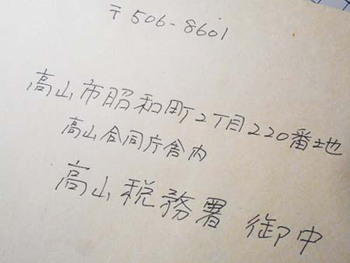 〒506-8601
高山市昭和町2丁目220番地
高山合同庁舎内
高山税務署 御中